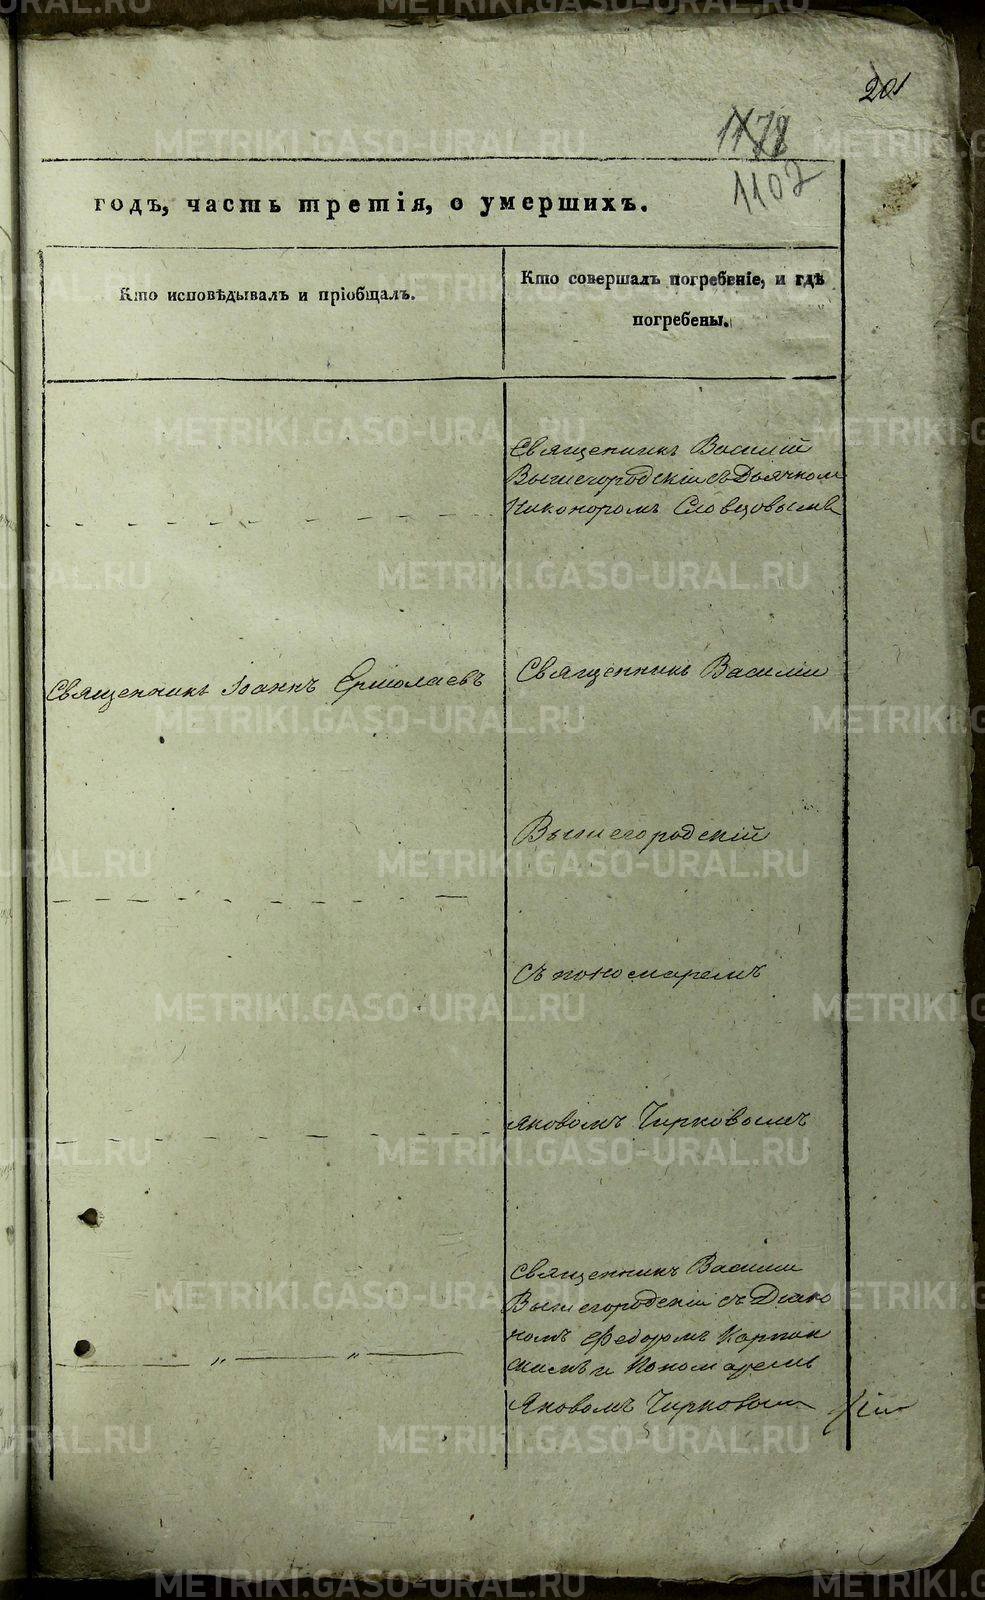 201
1102
годъ, часть третія, о умершихъ.
Кто исповѣдывалъ и пріобщалъ.
Кто совершалъ погребеніе, и гдѣ
погребены.
Священникъ Василій
Вышегородскій съ Дьячком
Никоноромъ Словцовымъ
Священникъ Іоаннъ Ермолаевъ
Священникъ Василіи
Вышегородскій
Съ пономаремъ
Яковомъ Чирковымъ
Священникъ Василии
Вышегородскіи съ Диако
номъ Федоромъ
и Пономаремъ
Яковомъ Чирковым
METRIKI.GASO-URAL.RU